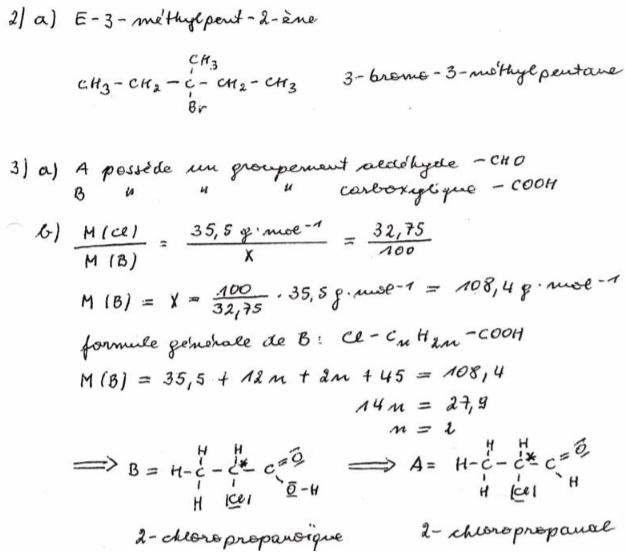 2/ a) E-3-méthylpent-2-ène
CH3
CH3-CH2-C-CH2-CH3 3-bromo-3-méthylpentane
Br
3) a) A possède un groupement aldéhyde -CHO
B " " " carboxylique -COOH
b) M(Cl) / M(B) = 35,5 g·mol-1 / X = 32,75 / 100
M(B) = X = 100 / 32,75 · 35,5 g·mol-1 = 108,4 g·mol-1
formule générale de B: Cl-CnH2n-COOH
M(B) = 35,5 + 12n + 2n + 45 = 108,4
14n = 27,9
n = 2
H H H H
⟹ B = H-C-C*-C=O ⟹ A = H-C-C*-C=O
H Cl O-H H Cl H
2-chloropropanoïque 2-chloropropanal